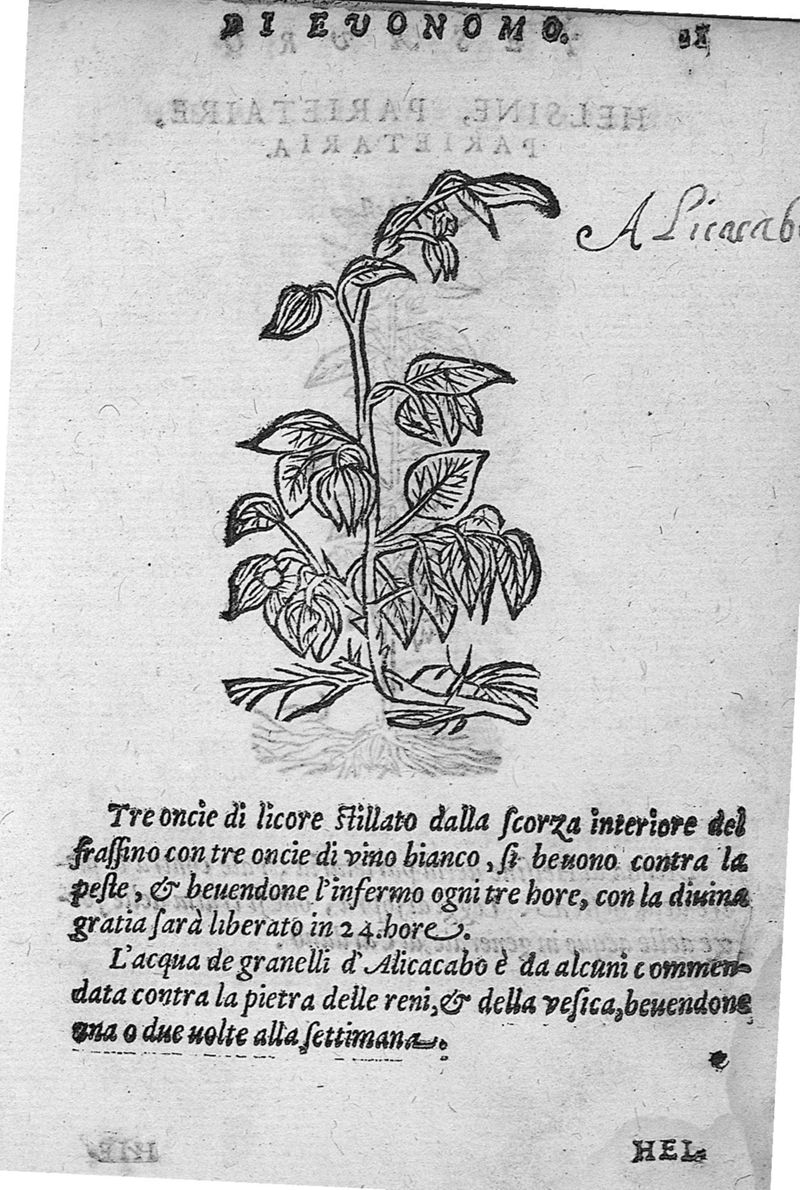 DI EVONOMO.
A Licacab
Tre oncie di licore stillato dalla ſcorza interiore del
fraſſino con tre oncie di vino bianco, ſi beuono contra la
peſte, & beuendone l'infermo ogni tre hore, con la diuina
gratia ſarà liberato in 24. hore.
L'acqua de granelli d'Alicacabo è da alcuni commen-
data contra la pietra delle reni, & della veſica, beuendone
una o due uolte alla ſettimana.
HEL-